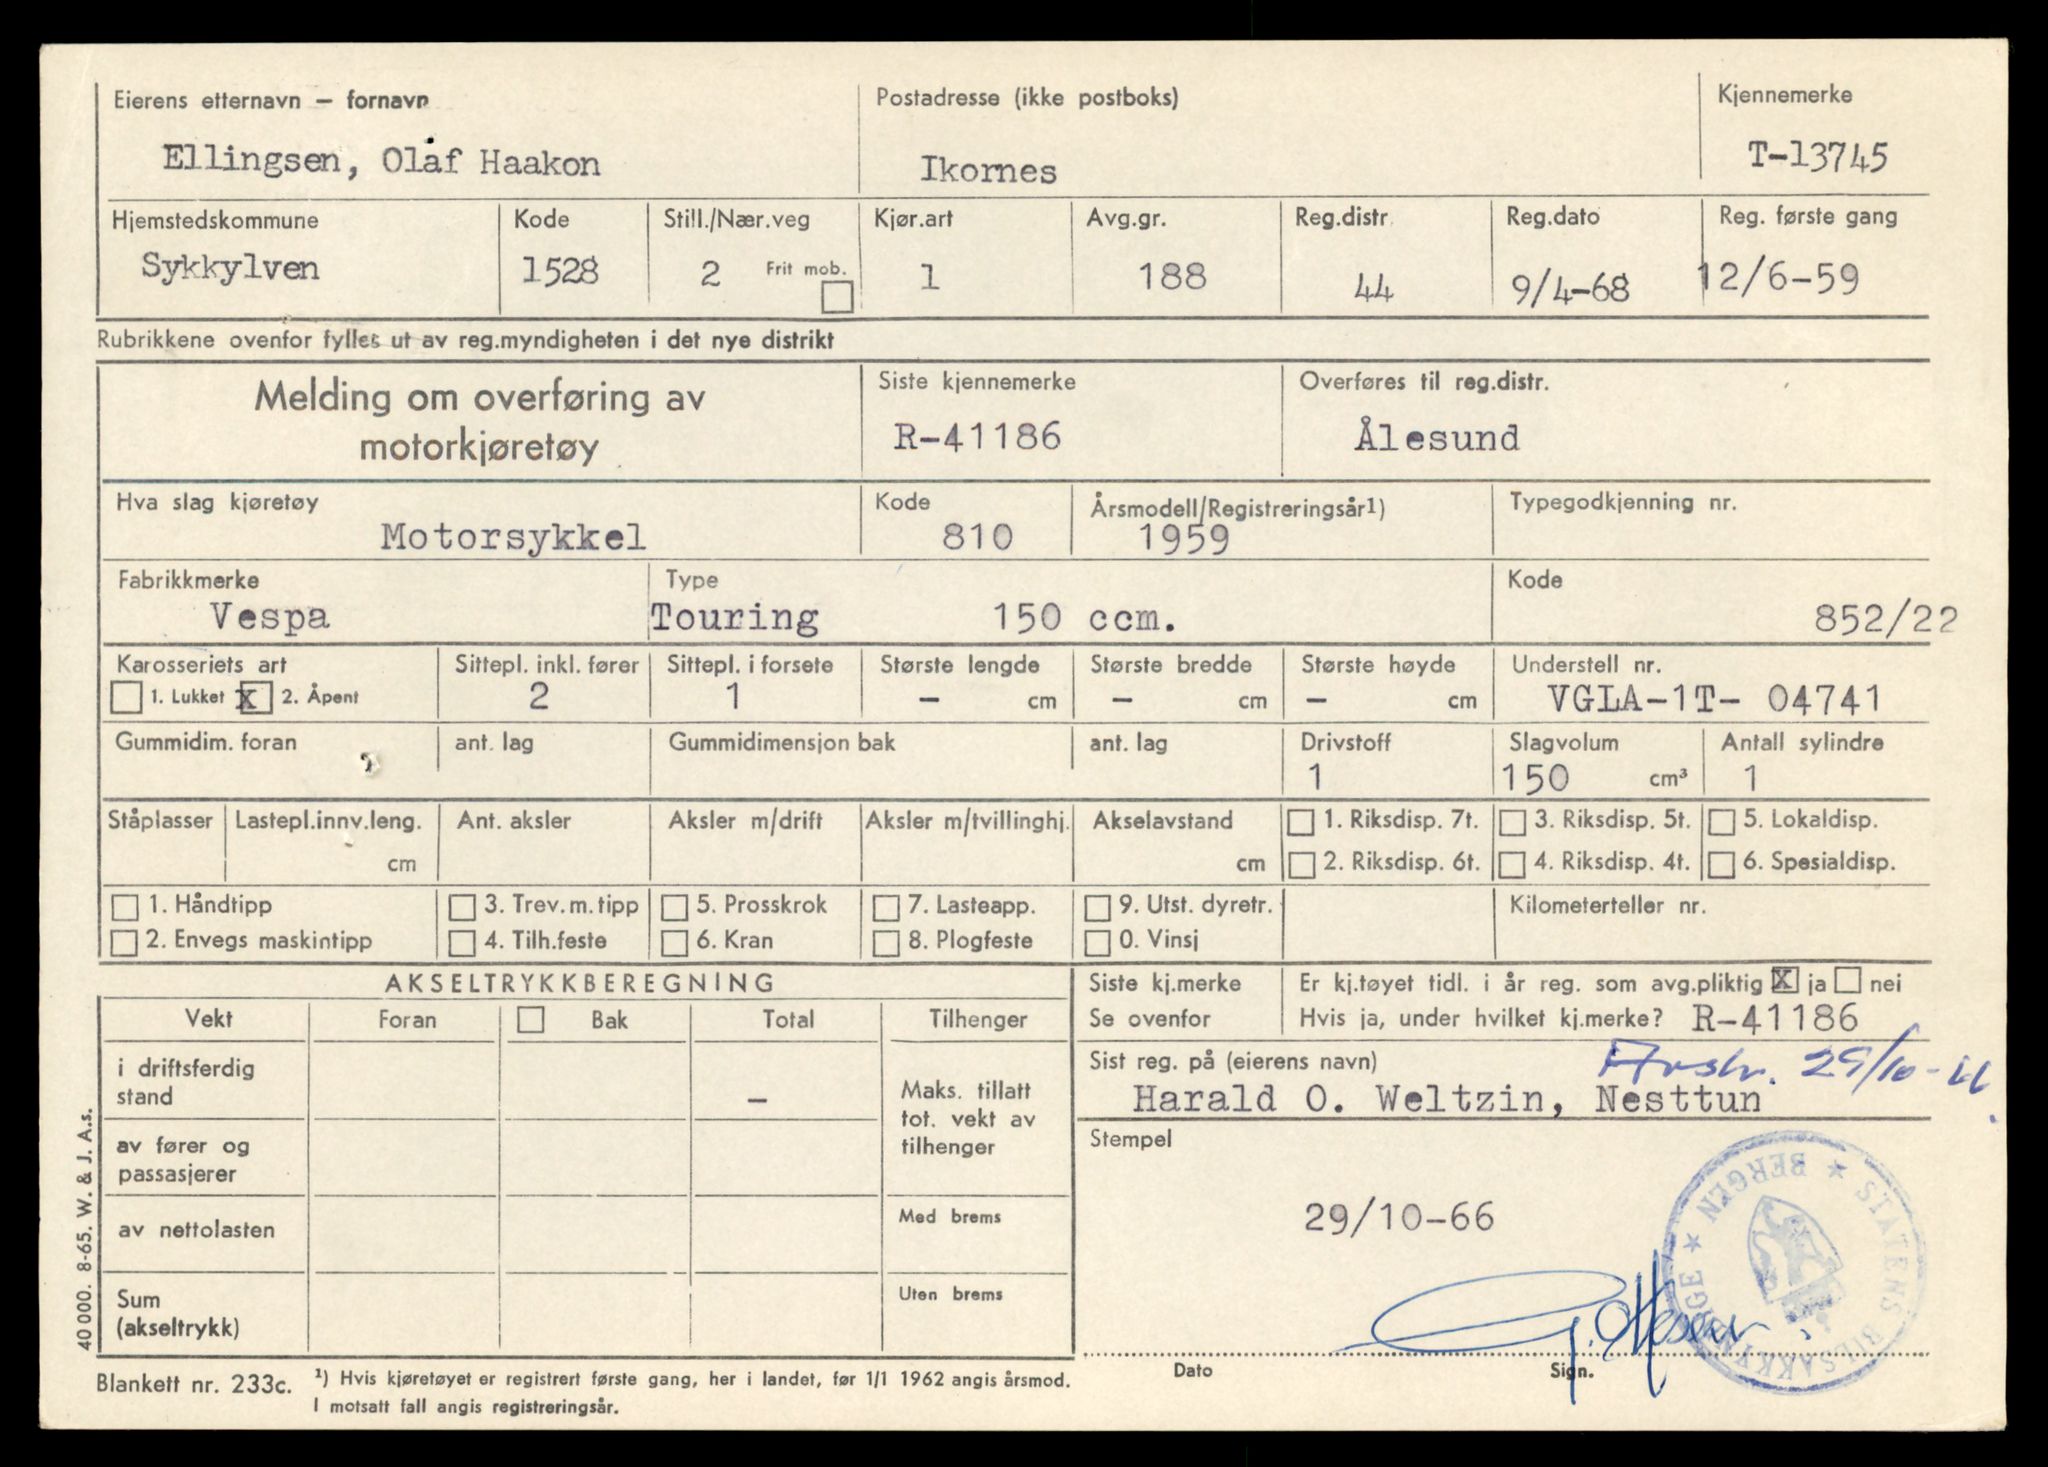 Eierens etternavn – fornavn
Ellingsen, Olaf Haakon
Postadresse (ikke postboks)
Ikornes
Kjennemerke
T-13745
Hjemstedskommune
Sykkylven
Kode
1528
Still./Nær.veg
2
Frit mob.
Kjør.art
1
Avg.gr.
188
Reg.distr.
44
Reg.dato
9/4-68
Reg. første gang
12/6-59
Rubrikkene ovenfor fylles ut av reg.myndigheten i det nye distrikt
Melding om overføring av
motorkjøretøy
Siste kjennemerke
R-41186
Overføres til reg.distr.
Ålesund
Hva slag kjøretøy
Motorsykkel
Kode
810
Årsmodell/Registreringsår1)
1959
Typegodkjenning nr.
Fabrikkmerke
Vespa
Type
Touring 150 ccm.
Kode
852/22
Karosseriets art
1. Lukket X 2. Åpent
Sittepl. inkl. fører
2
Sittepl. i forsete
1
Største lengde
– cm
Største bredde
– cm
Største høyde
– cm
Understell nr.
VGLA-1T- 04741
Gummidim. foran
ant. lag
Gummidimensjon bak
ant. lag
Drivstoff
1
Slagvolum
150 cm³
Antall sylindre
1
Ståplasser
Lastepl.innv.leng.
cm
Ant. aksler
Aksler m/drift
Aksler m/tvillinghj.
Akselavstand
cm
1. Riksdisp. 7t.
2. Riksdisp. 6t.
3. Riksdisp. 5t.
4. Riksdisp. 4t.
5. Lokaldisp.
6. Spesialdisp.
1. Håndtipp
2. Envegs maskintipp
3. Trev.m.tipp
4. Tilh.feste
5. Prosskrok
6. Kran
7. Lasteapp.
8. Plogfeste
9. Utst. dyretr.
0. Vinsj
Kilometerteller nr.
AKSELTRYKKBEREGNING
Vekt
Foran
Bak
Total
Tilhenger
i driftsferdig
stand
–
Maks. tillatt
tot. vekt av
tilhenger
av fører og
passasjerer
av nettolasten
Med brems
Sum
(akseltrykk)
Uten brems
Siste kj.merke
Se ovenfor
Er kj.tøyet tidl. i år reg. som avg.pliktig X ja nei
Hvis ja, under hvilket kj.merke? R-41186
Sist reg. på (eierens navn)
29/10-66.
Harald O. Weltzin, Nesttun
Stempel
29/10-66
STATENS BILSAKKYNDIGE ★ BERGEN ★
Dato
Sign.
40 000. 8-65. W. & J. A.s.
Blankett nr. 233c.
1) Hvis kjøretøyet er registrert første gang, her i landet, før 1/1 1962 angis årsmod.
I motsatt fall angis registreringsår.